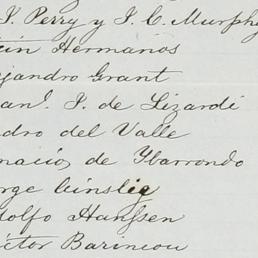 J. Perry y J. C. Murphy
Hermanos
ejandro Grant
J. de Lizardi
dro del Valle
nacio, de Ybarrondo
rge Ainslie
dolfo Hanssen
ictor Barincou